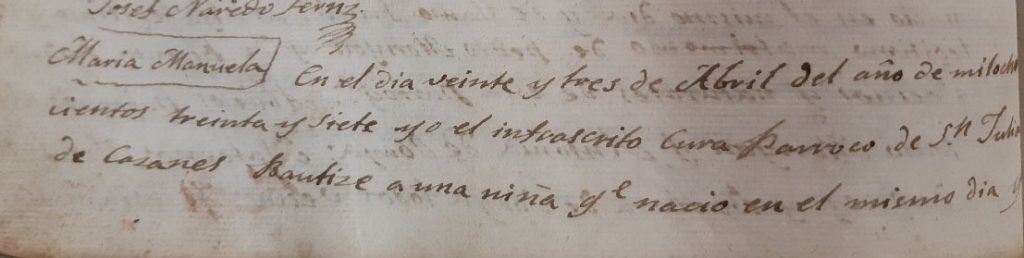 Josef Naredo Fernz.
Maria Manuela
En el dia veinte y tres de Abril del año de milocho
cientos treinta y siete yo el infrascrito Cura Parroco de S.n Julia
de Cazanes Bautize a una niña q.e nacio en el mismo dia y